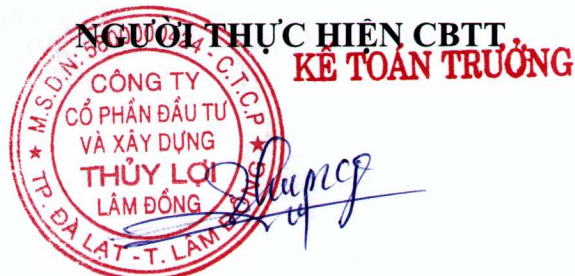 NGƯỜI THỰC HIỆN CBTT
KẾ TOÁN TRƯỞNG
M.S.D.N: - C.T.C.P
CÔNG TY
CỔ PHẦN ĐẦU TƯ
VÀ XÂY DỰNG
THỦY LỢI
LÂM ĐỒNG
TP. ĐÀ LẠT - T. LÂM ĐỒNG